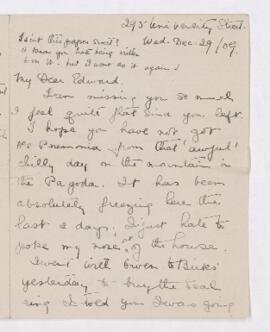 295 University Street.
Isn't this paper sweet?
Wed. Dec. 29/09.
I know you hate being written
to on it - but I want as it again!
My Dear Edward.
I am missing you so much
I feel quite flat since you left.
I hope you have not got
the Pneumonia from that awful
chilly day on the mountain in
the Pagoda. It has been
absolutely freezing here the
last 2 days; I just hate to
poke my nose out of the house.
I went with Gwen to Birks'
yesterday to buy the seal
ring I told you I was going